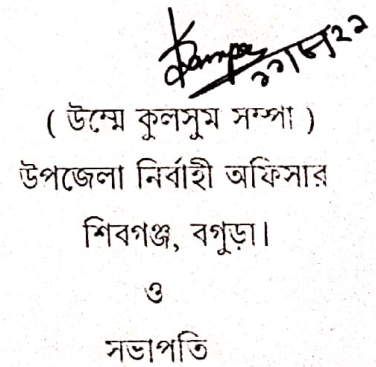 ( উম্মে কুলসুম সম্পা )
উপজেলা নির্বাহী অফিসার
শিবগঞ্জ, বগুড়া।
ও
সভাপতি